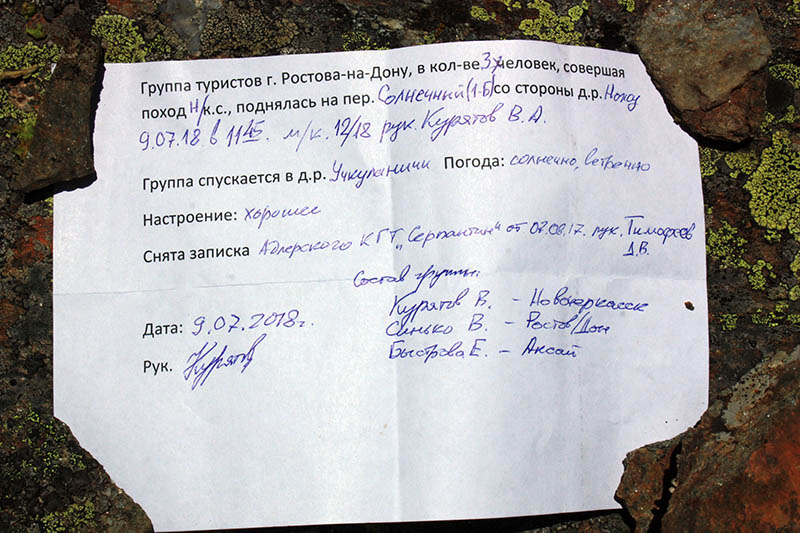 Группа туристов г. Ростова-на-Дону, в кол-ве 3х человек, совершая
поход н/к.с., поднялась на пер. Солнечный (1-Б) со стороны д.р.
9.07.18 в 11 45 м/к. 12/18 рук. Курятов В.А.
Группа спускается в д.р. Учкуланичи Погода: солнечно, ветренно
Настроение: хорошее
Снята записка Адлерского КГТ „Серпантин" от 07.08.17. рук. Тимофеев
Д.В.
Состав группы:
Курятов В. - Новочеркасск
Синько В. - Ростов/Дон
Дата: 9.07.2018г.
Быстрова Е. - Аксай
Рук. Курятов